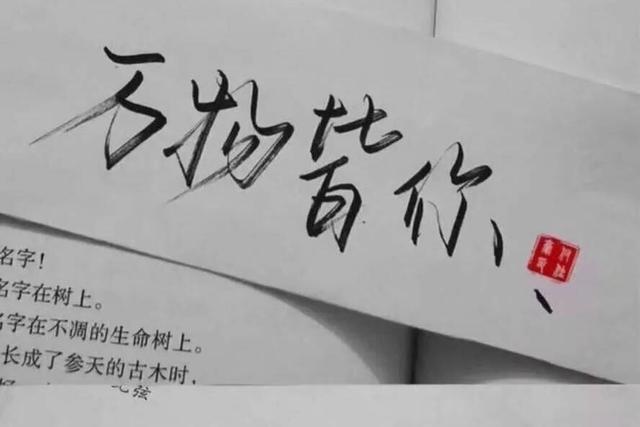 万物皆你、
名字!
名字在树上。
名字在不凋的生命树上。
长成了参天的古木时,
弦